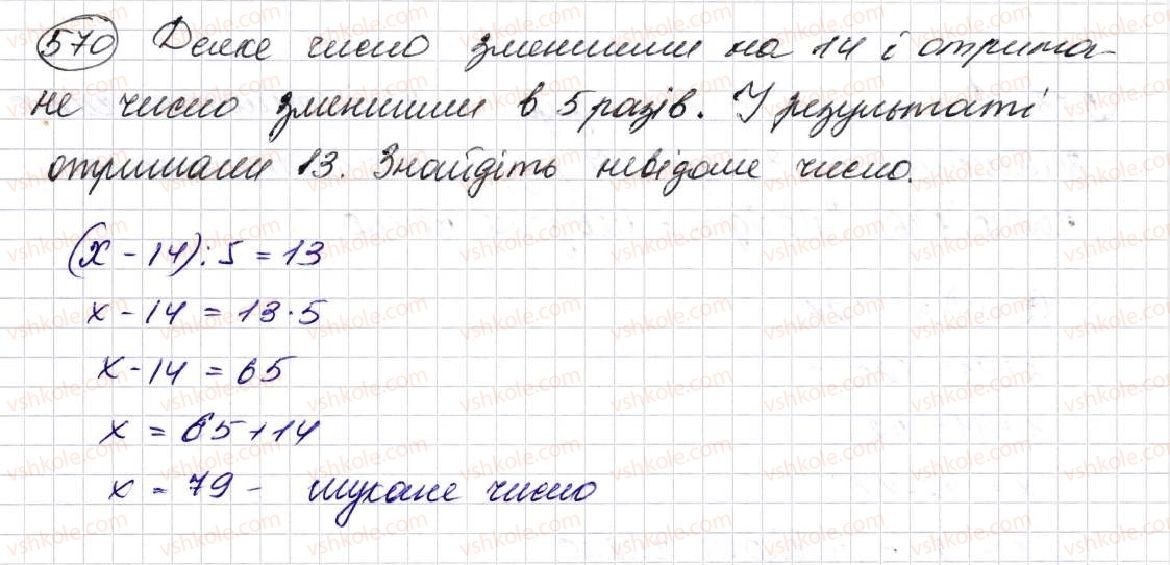 570 Деяке число зменшили на 14 і отрима-
не число зменшили в 5 разів. У результаті
отримали 13. Знайдіть невідоме число.
(x - 14) : 5 = 13
x - 14 = 13 · 5
x - 14 = 65
x = 65 + 14
x = 79 - шукане число
vshkole.com